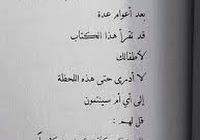 بعد أعوام عدة
قد تقرأ هذا الكتاب
لأطفالك
لا أدرى حتى هذه اللحظة
إلى أي أم سينتمون
قل لهم :